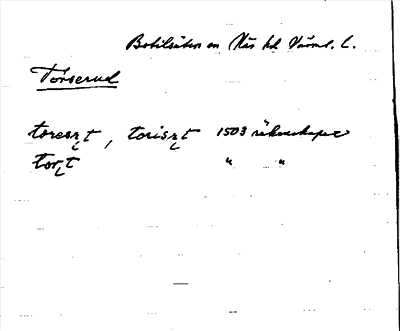 Botilsäter sn Näs hd Värml. L.
Torserud
torerꝛt, torisꝛt 1503 räkenskaper
torꝛt " "